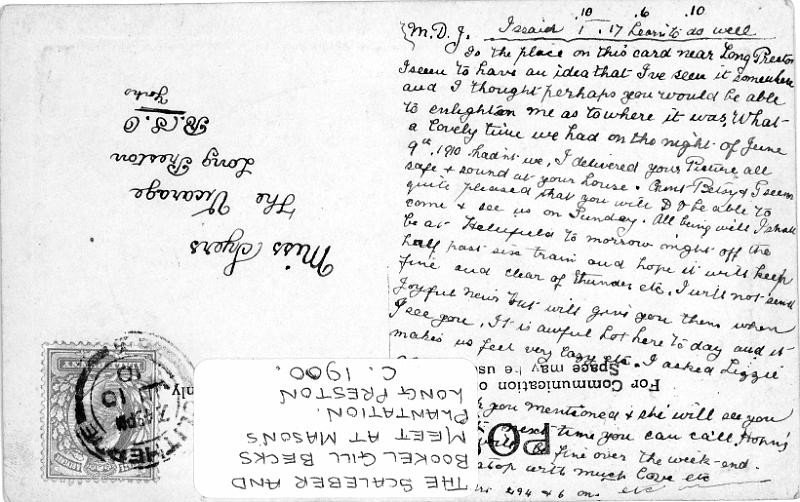 10 . 6 . 10
M.D.J. Isaiah 1 . 17 Learn to do well
Is the place on this card near Long Preston
I seem to have an idea that I've seen it somewhere
and I thought perhaps you would be able
to enlighten me as to where it was, What
a lovely time we had on the night of June
9th, 1910 hadn't we, I delivered your Picture all
safe & sound at your house. Aunt Betsy & I seem
quite pleased that you will D V be able to
come & see us on Sunday. All being well I shall
be at Hellifield to morrow night off the
half past six train and hope it will keep
fine and clear of thunder etc. I will not send
Joyful news but will give you them when
I see you. It is awful hot here to day and it
makes us feel very lazy etc. I asked Lizzie
you mentioned & she will see you
next time you can call. Hoping
be fine over the week-end.
stop with much love etc
294 & 6 on etc
Miss Ayers
The Vicarage
Long Preston
R.S.O
Yorks
CLITHEROE
7.45PM
JU 10
10
POSTAGE
For Communication
Space may be use
nly
PO
THE SCALEBER AND
BOOKEL GILL BECKS
MEET AT MASONS
PLANTATION.
LONG PRESTON
C. 1900.